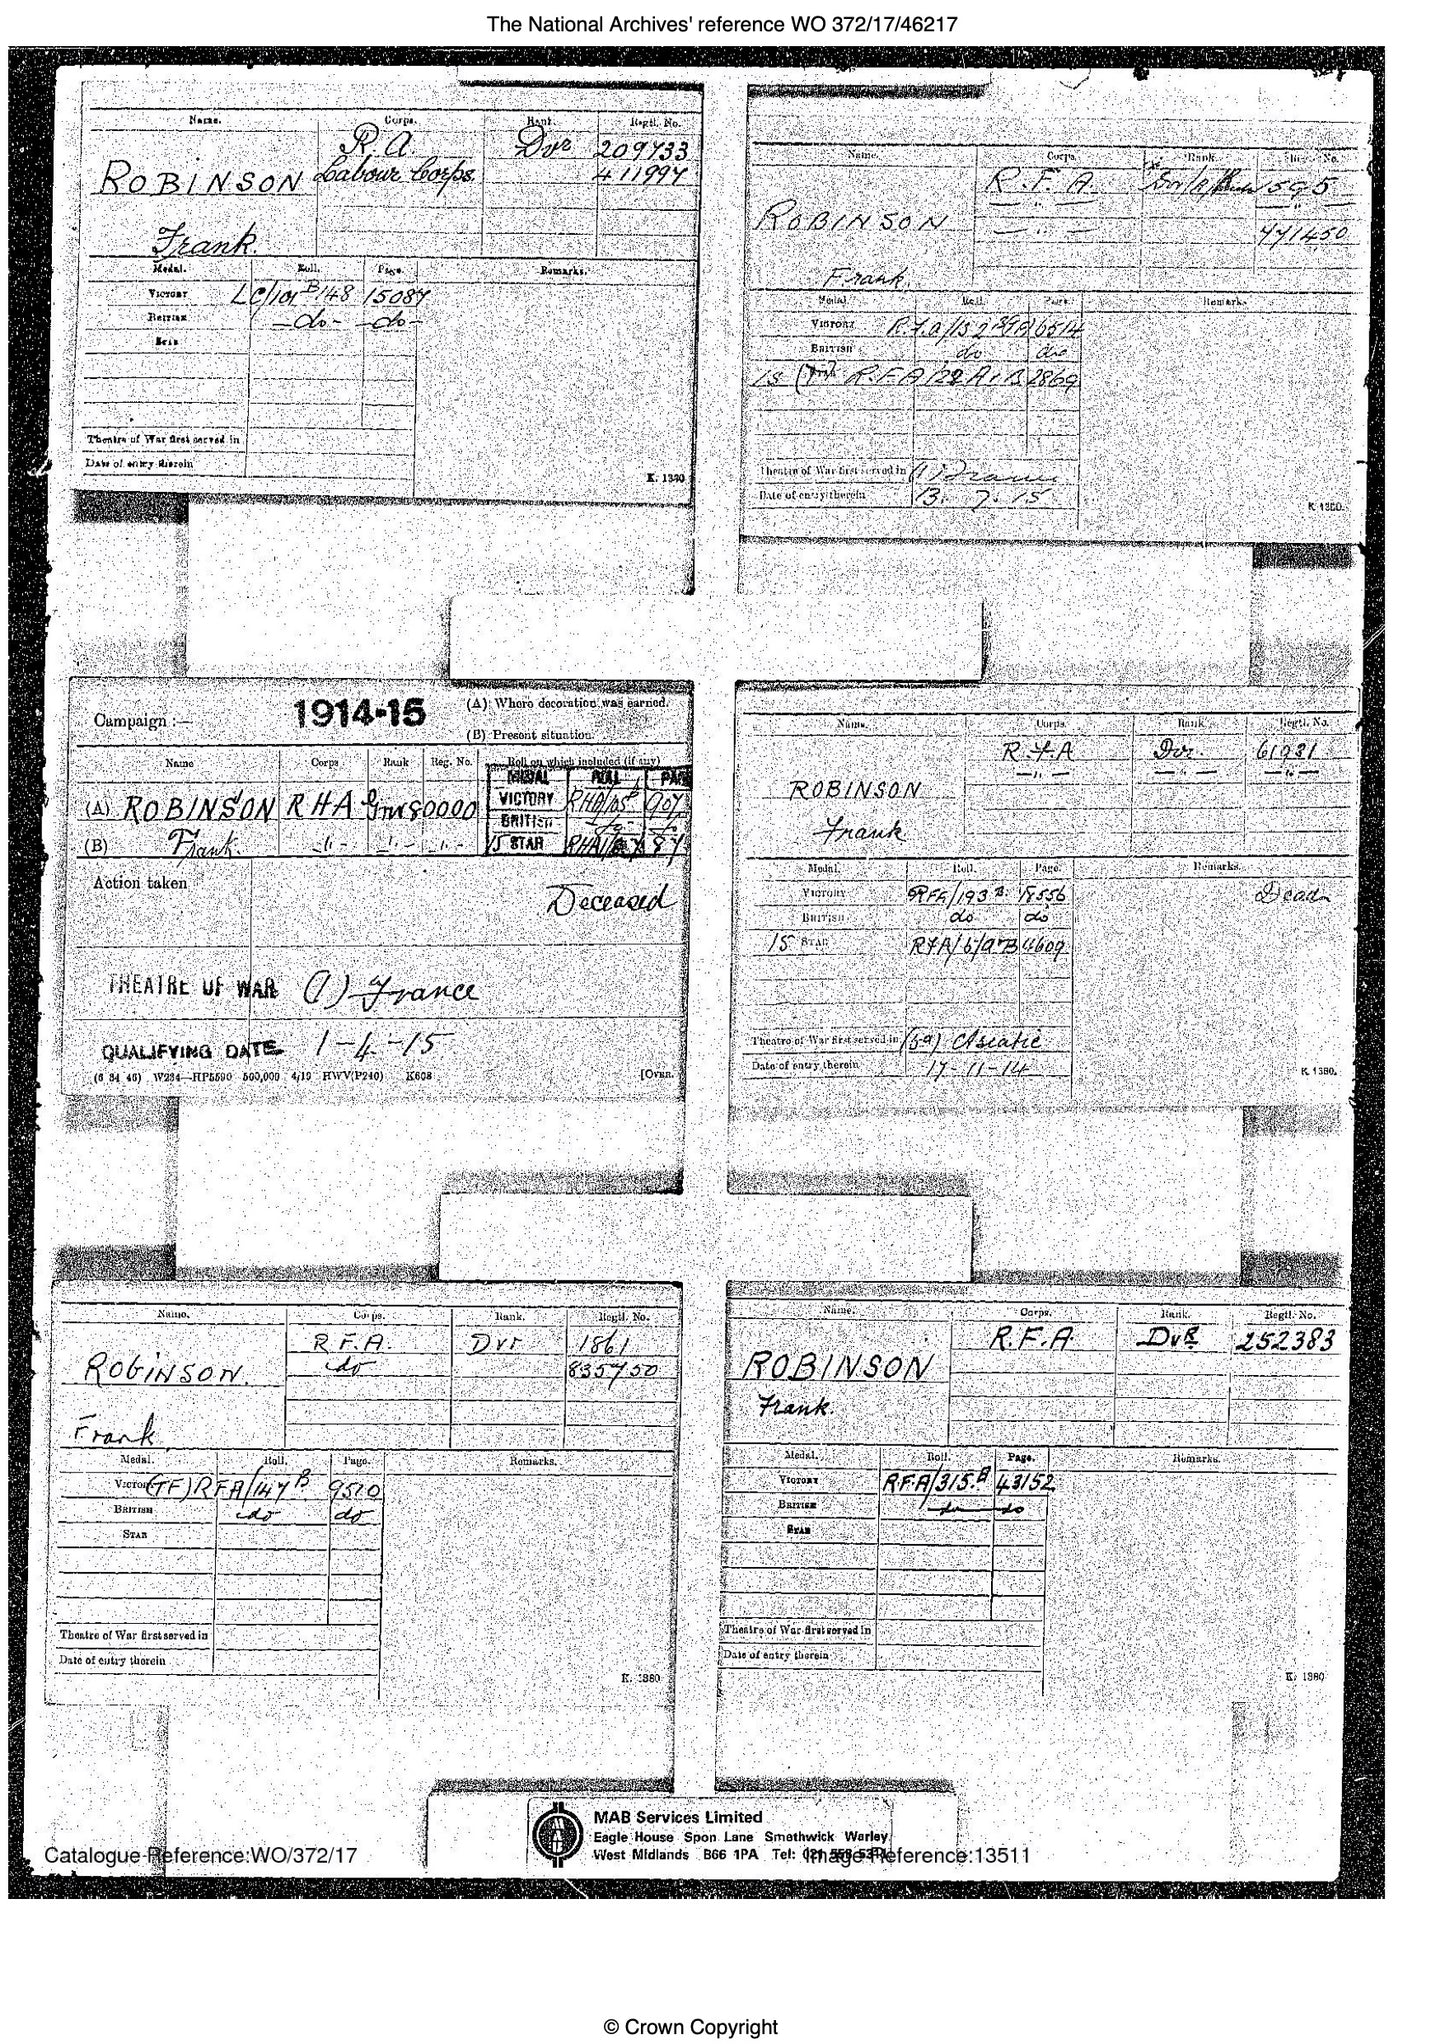 The National Archives' reference WO 372/17/46217
Name. Corps. Rank. Regtl. No.
R.A Dvr 209733
ROBINSON Labour Corps. 411997
Frank.
Medal. Roll. Page. Remarks.
VICTORY LC/101 B148 15087
BRITISH -do- -do-
STAR
Theatre of War first served in
Date of entry therein
K. 1380
Name. Corps. Rank. Regtl. No.
R.F.A. 595
ROBINSON — " — 771450
Frank.
Medal. Roll. Page. Remarks.
VICTORY 6514
BRITISH do do
15 R.F.A/22 A+B 2869
Theatre of War first served in (1) France
Date of entry therein 13. 7. 15
K 1380.
Campaign :— 1914-15 (A) Where decoration was earned.
(B) Present situation.
Name Corps Rank Reg. No. Roll on which included (if any)
MEDAL ROLL PAGE
(A) ROBINSON RHA Gnr 80000 VICTORY RHA/05B 907
BRITISH
(B) Frank. -"- -"- -"- 15 STAR 87
Action taken Deceased
THEATRE OF WAR (1) France
QUALIFYING DATE 1-4-15
(6 34 46) W234—HP5590 500,000 4/19 HWV(P240) K608 [OVER.
Name. Corps. Rank. Regtl. No.
R.F.A Dvr. 61931
ROBINSON — " — — " — — " —
Frank
Medal. Roll. Page. Remarks.
VICTORY RFA/193B 18556 Dead
BRITISH do do
15 STAR RFA/6/A+B 4609
Theatre of War first served in (5a) Asiatic
Date of entry therein 17-11-14
K 1380.
Name. Corps. Rank. Regtl. No.
R.F.A. Dvr 1861
ROBINSON. do 835750
Frank
Medal. Roll. Page. Remarks.
VICTORY (TF) RFA/147B 9510
BRITISH do do
STAR
Theatre of War first served in
Date of entry therein
K. 1380
Name. Corps. Rank. Regtl. No.
R.F.A. DvR 252383
ROBINSON
Frank.
Medal. Roll. Page. Remarks.
VICTORY R.F.A/315.B 43152
BRITISH do do
STAR
Theatre of War first served in
Date of entry therein
K. 1380
MAB Services Limited
Eagle House Spon Lane Smethwick Warley
West Midlands B66 1PA Tel: 021
Catalogue Reference:WO/372/17 Image Reference:13511
© Crown Copyright